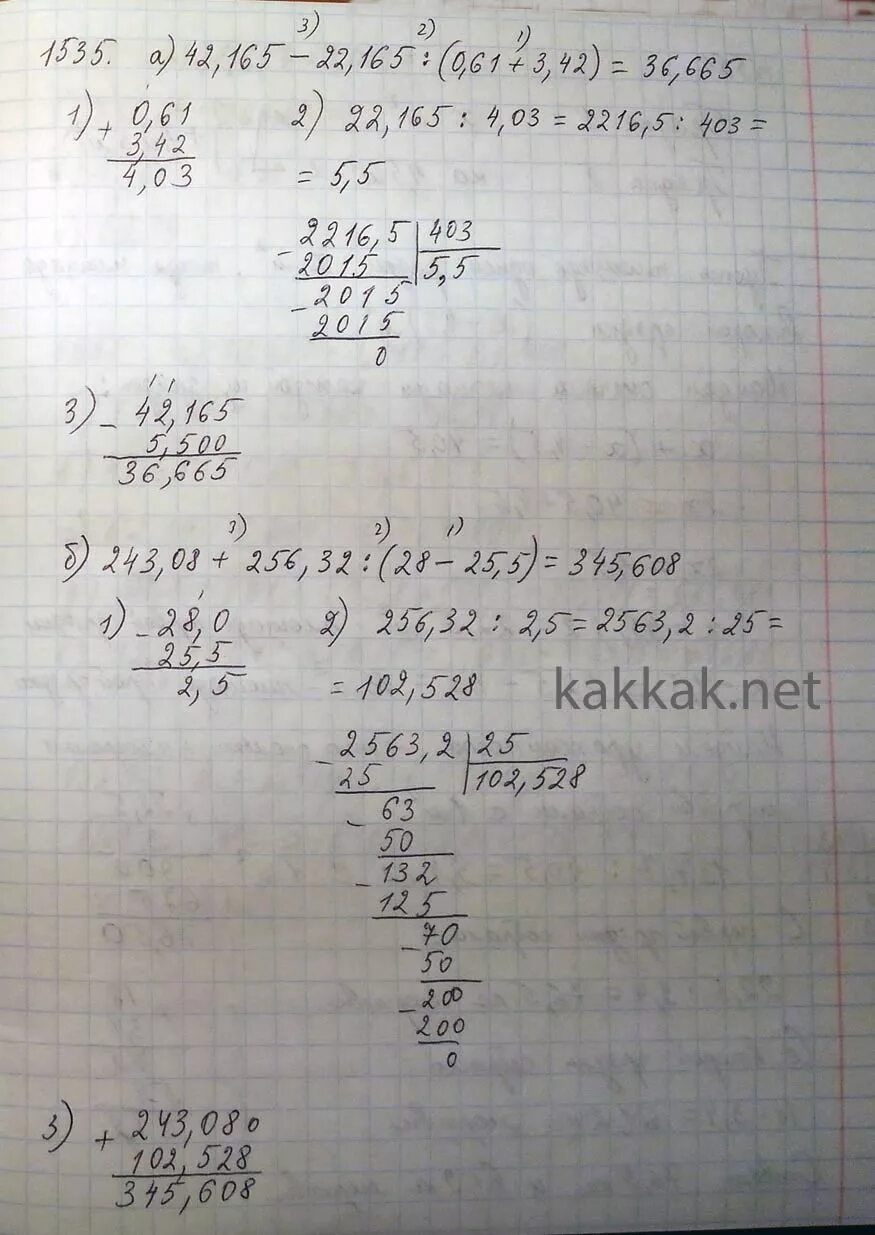 3) 2) 1)
1535. а) 42,165 − 22,165 : (0,61 + 3,42) = 36,665
1) + 0,61
3,42
4,03
2) 22,165 : 4,03 = 2216,5 : 403 =
= 5,5
− 2216,5 | 403
2015 | 5,5
− 2015
2015
0
3) − 42,165
5,500
36,665
3) 2) 1)
б) 243,08 + 256,32 : (28 − 25,5) = 345,608
1) − 28,0
25,5
2,5
2) 256,32 : 2,5 = 2563,2 : 25 =
= 102,528
kakkak.net
− 2563,2 | 25
25 | 102,528
− 63
50
− 132
125
− 70
50
− 200
200
0
3) + 243,080
102,528
345,608